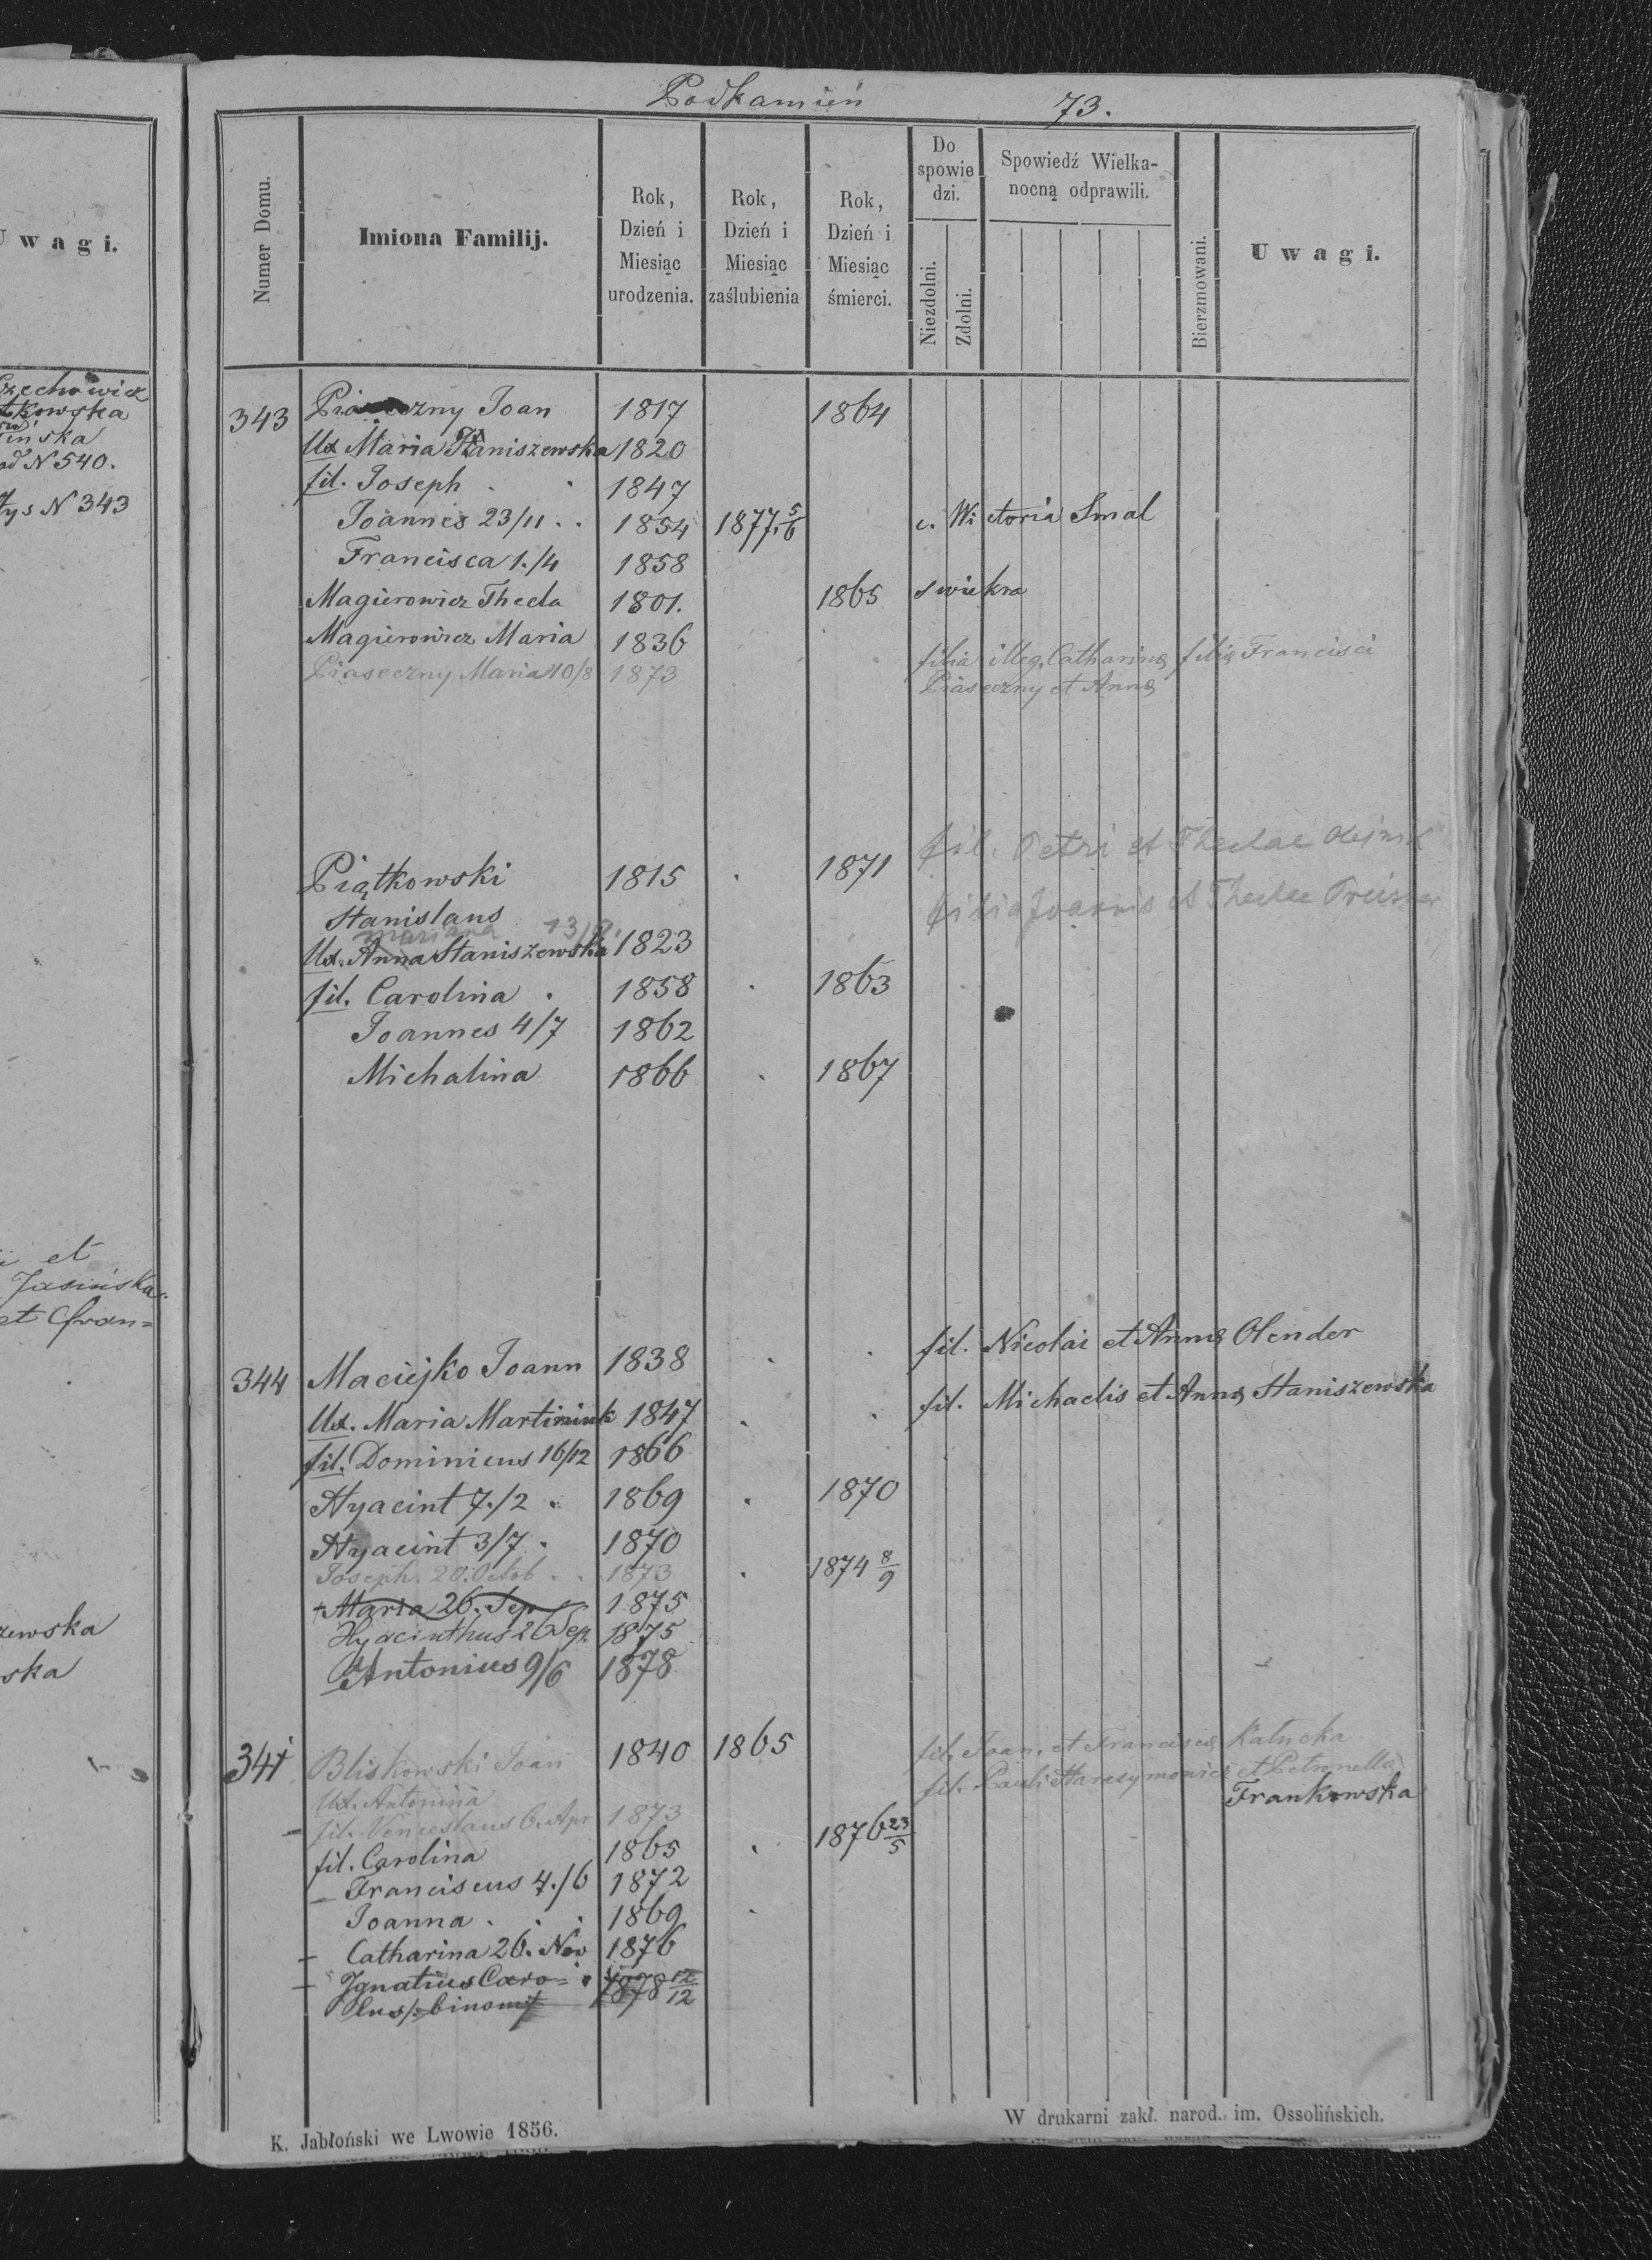 Podkamień 73.
Numer Domu.
Imiona Familij.
Rok, Dzień i Miesiąc urodzenia.
Rok, Dzień i Miesiąc zaślubienia
Rok, Dzień i Miesiąc śmierci.
Do spowie dzi.
Niezdolni.
Zdolni.
Spowiedź Wielka-
nocną odprawili.
Bierzmowani.
Uwagi.
Uwagi.
Czechowicz
ińska
N 540.
N 343
et
Jasińska
et
zewska
ska
343 Joan 1817 1864
Ux Maria Staniszewska 1820
fil. Joseph 1847
Joannes 23/11 1854 1877 5/6 c. Wictoria Smal
Francisca 1./4 1858
Magierowicz Thecla 1801. 1865 swiekra
Magierowicz Maria 1836
Piaseczny Maria 10/8 1873 filia illeg. Catharinę filię Francisci
Piaseczny et Annę
Piątkowski 1815 1871 fil. Petri et Theclae
Stanislaus filia Joannis et Theclae
Mariana
Ux. Anna Staniszewska 1823
fil. Carolina 1858 1863
Joannes 4/7 1862
Michalina 1866 1867
344 Maciejko Joann 1838 fil. Nicolai et Annę Olender
Ux. Maria Martiniuk 1847 fil. Michaelis et Annę Staniszewska
fil. Dominicus 16/12 1866
Hyacint 7./2 1869 1870
Hyacint 3/7 1870
Joseph. 20. Octob 1873 1874 8/9
+ Maria 26. Sep 1875
Hyacinthus 26 Sep. 1875
Antonius 9/6 1878
344 Bliskowski Joan 1840 1865 fil. Joan. et Franciscę Kałucka
Ux. Antonina fil. Pauli Harasymowicz et Petronella
Frankowska
fil. Venceslaus 6. Apr 1873
fil. Carolina 1865 1876 23/5
Franciscus 4./6 1872
Joanna 1869
Catharina 26. Nov 1876
Ignatius Caro= 1878 12/12
lus /: binom
K. Jabłoński we Lwowie 1856.
W drukarni zakł. narod. im. Ossolińskich.